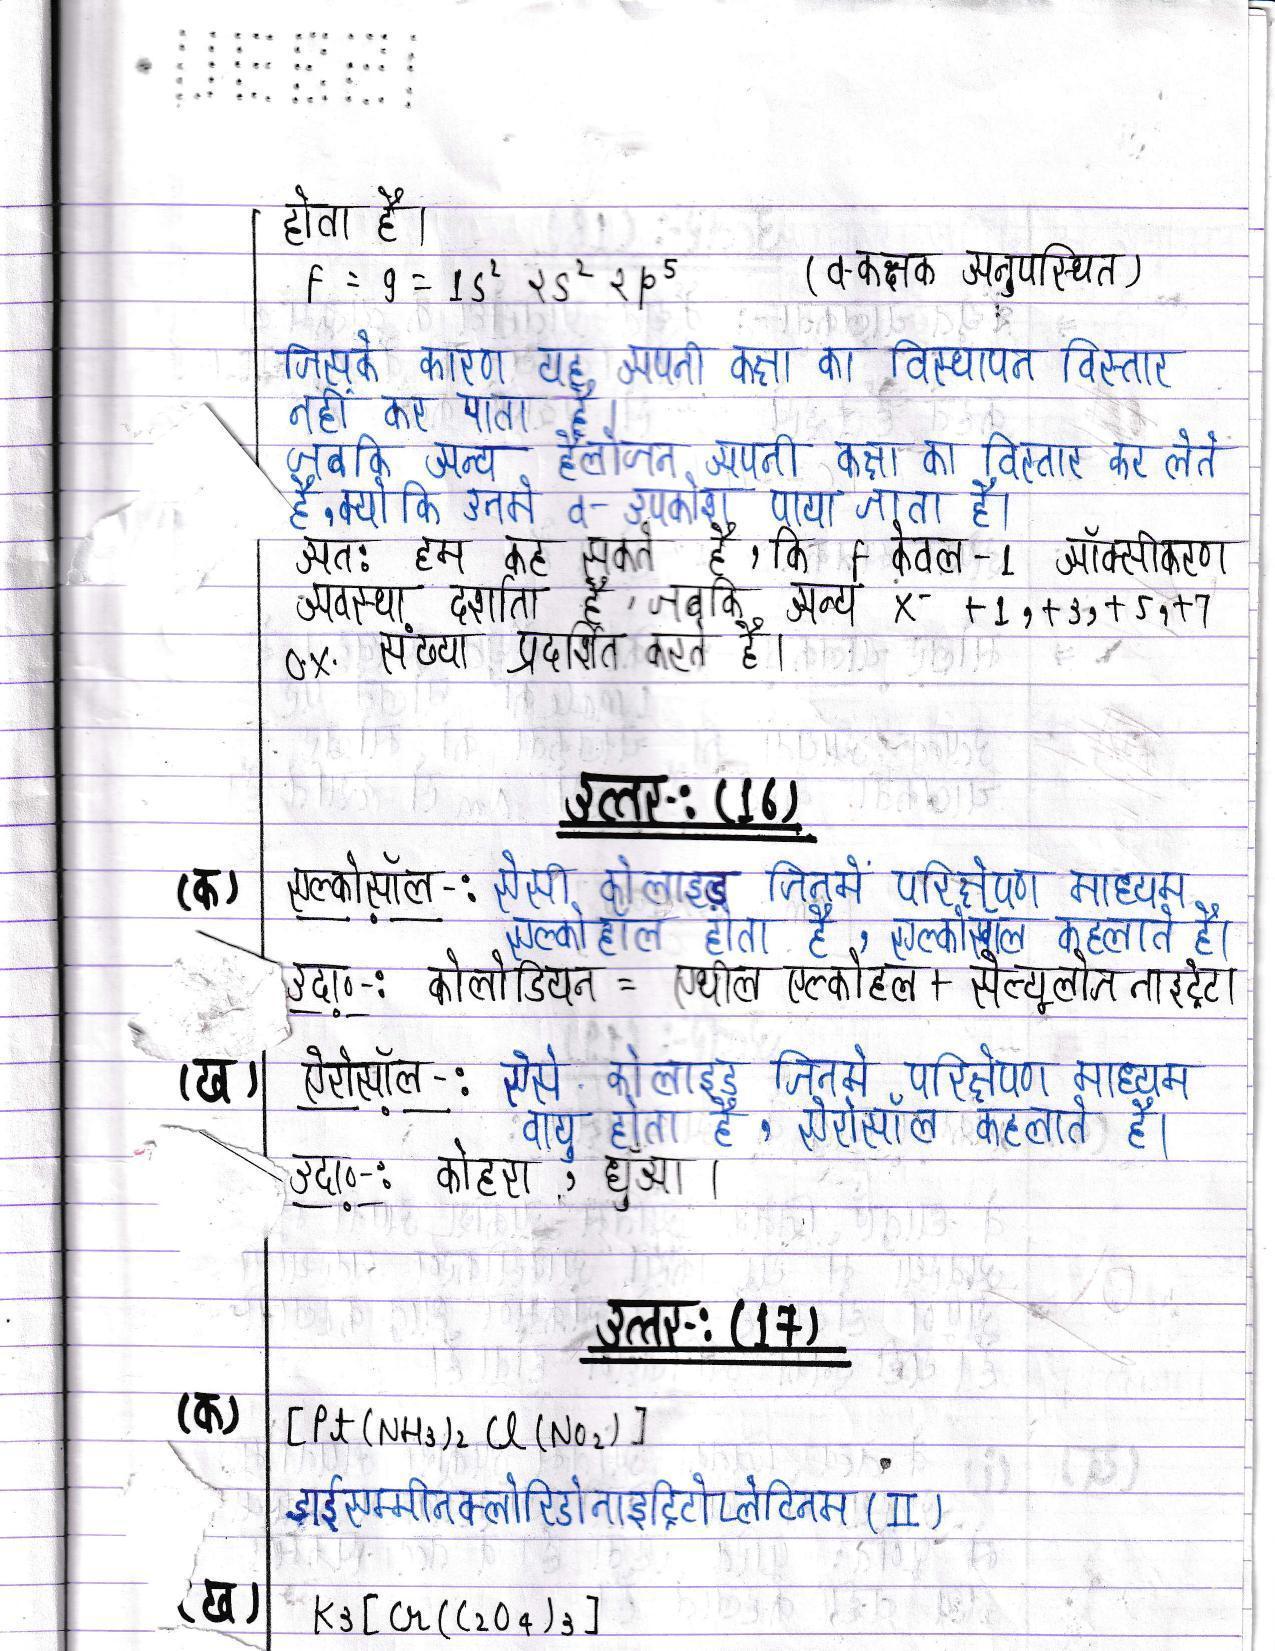 होता है।
F = 9 = 1s² 2s² 2p⁵ (d-कक्षक अनुपस्थित)
जिसके कारण यह अपनी कक्षा का विस्थापन विस्तार
नहीं कर पाता है।
जबकि अन्य हैलोजन अपनी कक्षा का विस्तार कर लेते
है, क्यो कि उनमे d- उपकोश पाया जाता है।
अतः हम कह सकते है, कि F केवल -1 ऑक्सीकरण
अवस्था दर्शाता है, जबकि अन्य X⁻ +1,+3,+5,+7
O.X. संख्या प्रदर्शित करते है।
उत्तर-: (16)
(क) एल्कोसॉल-: ऐसी कोलाइड जिनमें परिक्षेपण माध्यम
एल्कोहाल होता है, एल्कोसॉल कहलाते है।
उदा०-: कोलोडियन = एथील एल्कोहल + सेल्यूलोज नाइट्रेट।
(ख) ऐरोसॉल-: ऐसे कोलाइड जिनमे परिक्षेपण माध्यम
वायु होता है, ऐरोसॉल कहलाते है।
उदा०-: कोहरा, धुँआ।
उत्तर-: (17)
(क) [Pt(NH₃)₂ Cl(NO₂)]
डाईएम्मीनक्लोरिडोनाइट्रिटोप्लेटिनम (II)
(ख) K₃[Cr(C₂O₄)₃]